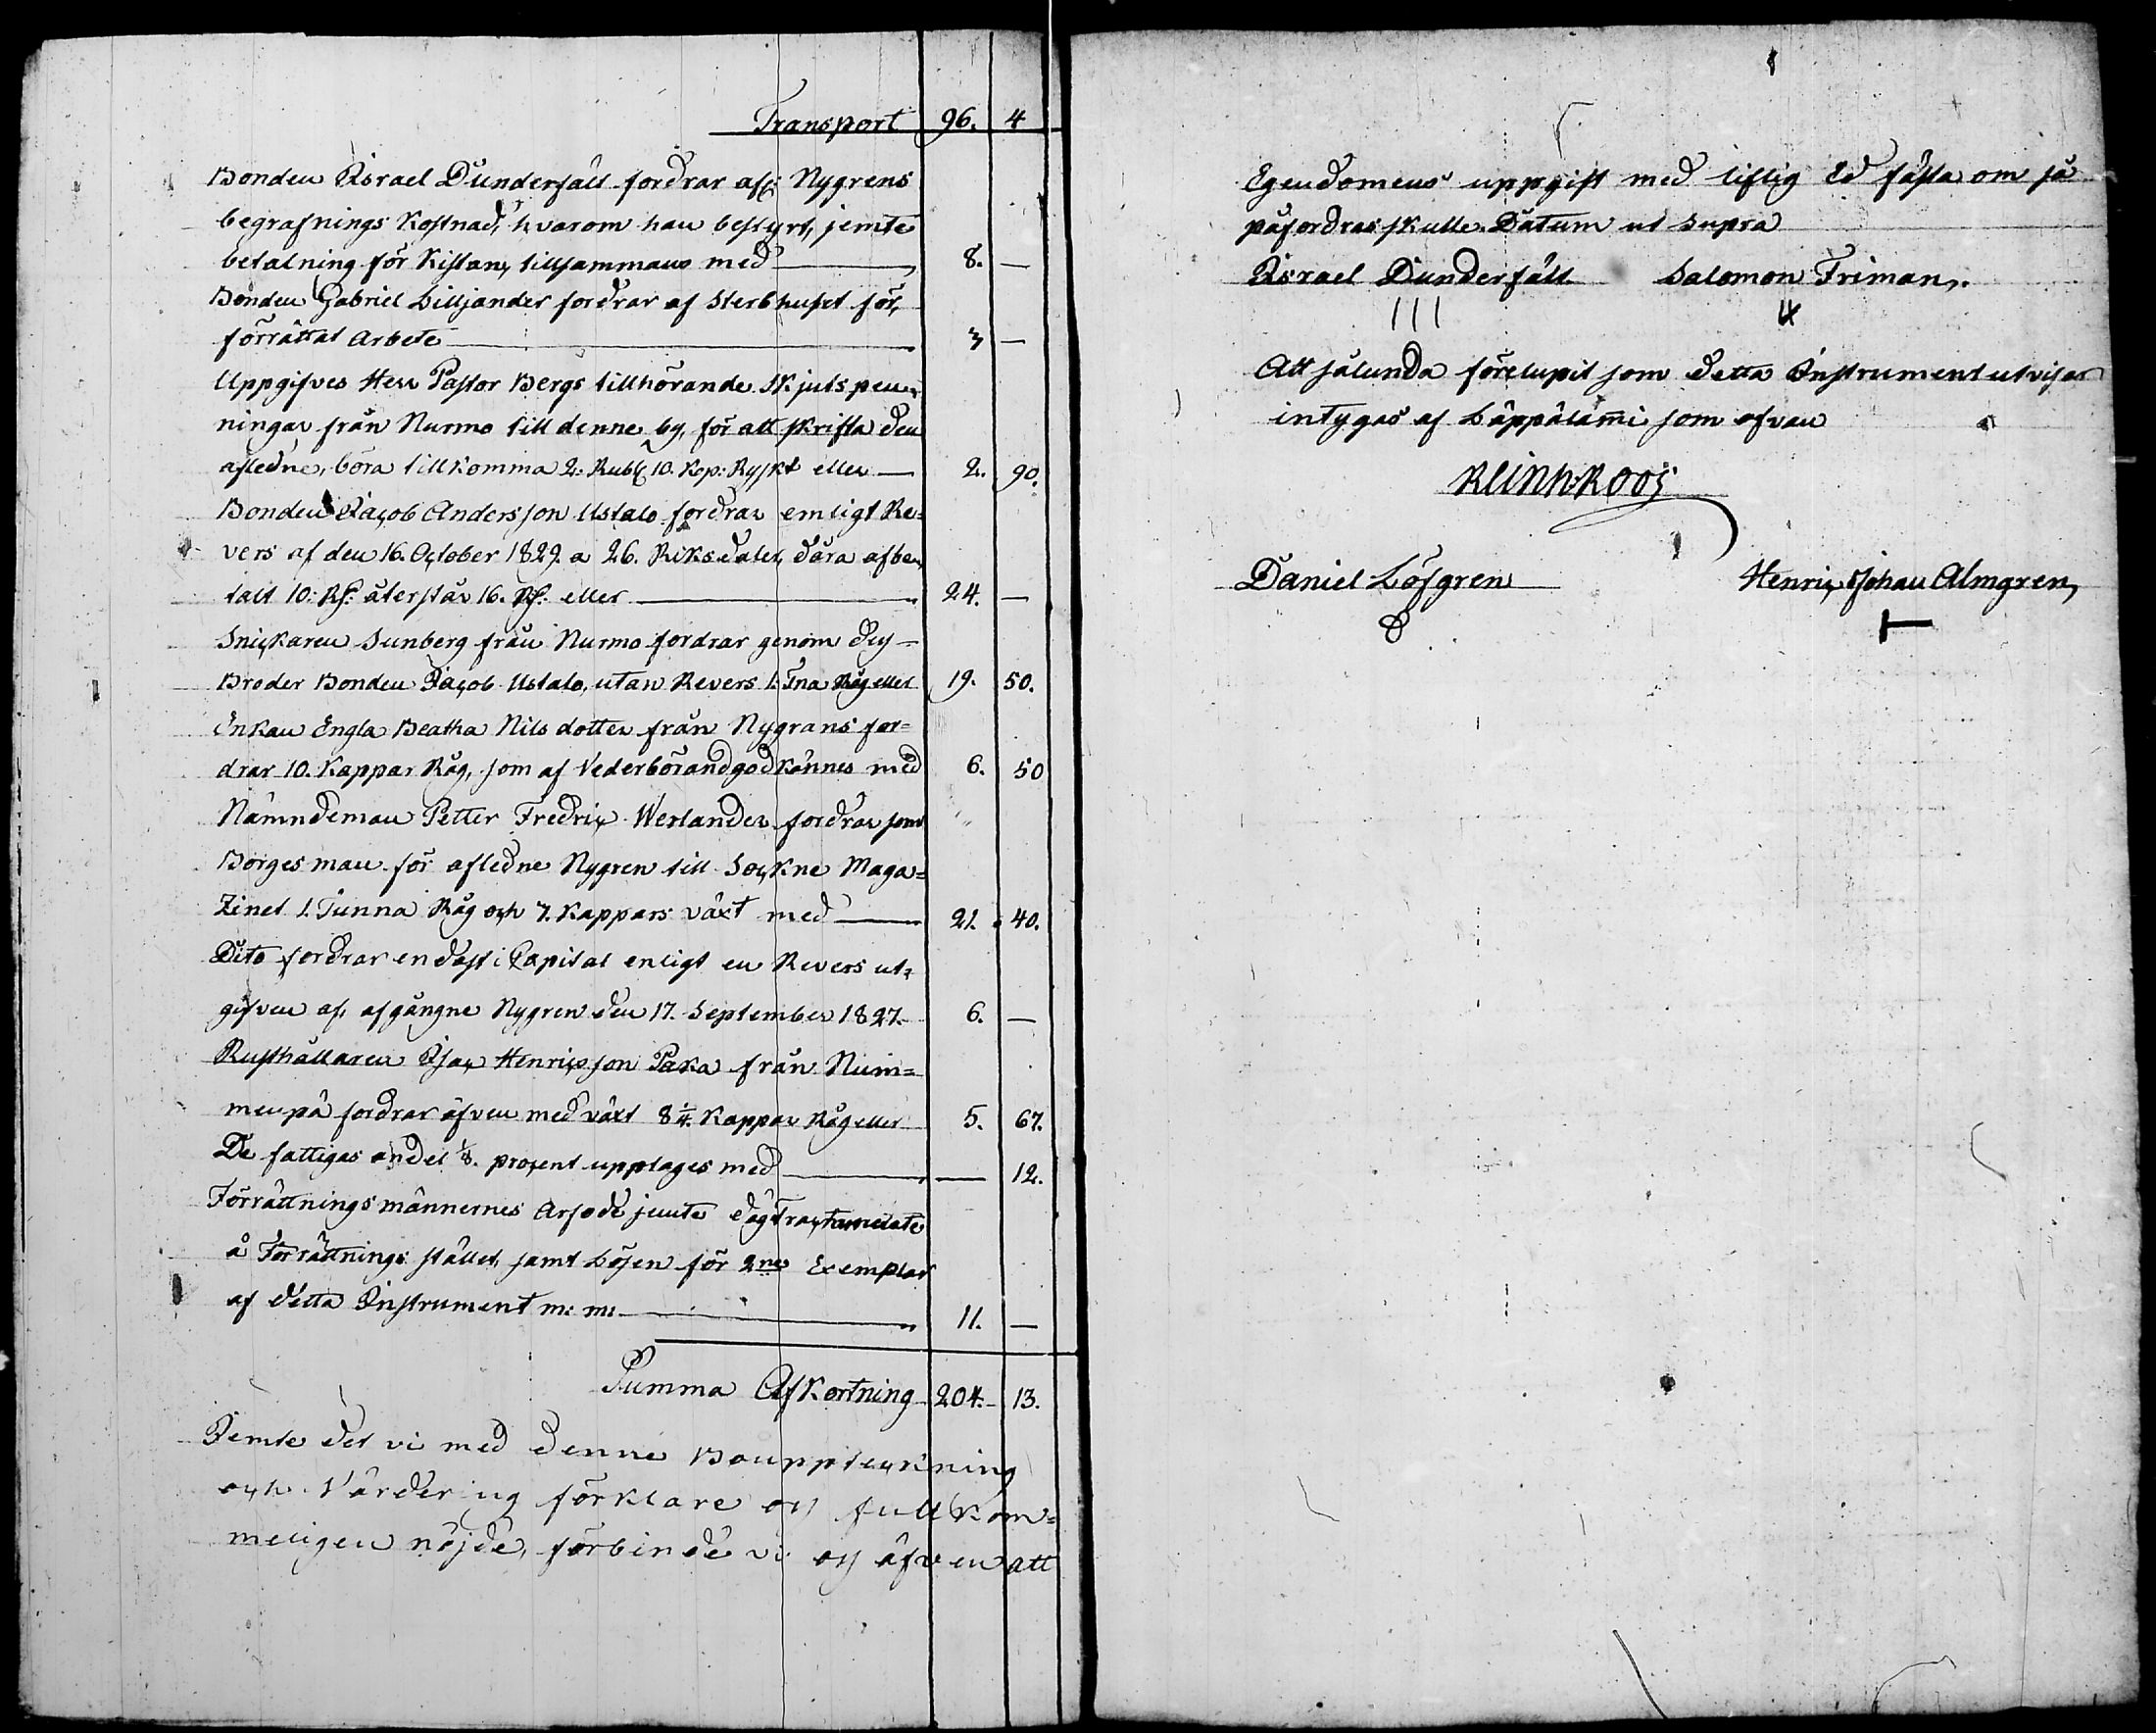 Transport 96. 4
Bonden Israel Dunderfält fordrar af Nygrens
begrafnings Kostnad, hvarom han bestyrt, jemte
betalning för Kistan, tillsammans med 8. —
Bonden Gabriel Lilljander fordrar af Sterbhuset för,
förrättat arbete 3 —
Uppgifves Herr Pastor Bergs tillhörande Skjutspen-
ningar från Nurmo till denne by, för att skrifta den
afledne, böra tillkomma 2: Rubl 10. Kop: Ryskt eller 2. 90.
Bonden Jacob Andersson Ustalo fordrar emligt Re=
vers af den 16. October 1829. a 26. Riksdaler, dära afbe-
talt 10: Rs: återstår 16. Rs: eller 24. —
Snickaren Sunberg från Nurmo fordrar genom dess
Broder Bonden Jacob Ustalo, utan Revers 1. Tna Råg eller 19. 50.
Enkan Engla Beatha Nils dotter från Nygrans for=
drar 10. Kappar Råg, som af Vederbörand godkännes med 6. 50
Nämndeman Petter Fredric Werlander fordrar som
Borgesman för afledne Nygren till Sockne Maga=
Zinet 1. Tunna Råg och 7. Kappars växt med 21. 40.
Dito fordrar endast i Capital enligt en Revers ut=
gifven af, afgångne Nygren den 17. September 1827. 6. —
Rusthållaren Isac Henricsson Paka från Nuin=
men på fordrar äfven med växt 8 1/4. Kappar Råg eller 5. 67.
De fattigas andel 1/8. procent upptages med — 12.
Förrättningsmännernes Arfode jemte dagtractamente
å Förrättnings stället, samt Lösen för 2ne Exemplar
af detta Instrument m: m: 11. —
Summa Afkortning 204. 13.
Jemte det vi med denne Bouppteckning
och Värdering förklare oss fullkom=
meligen nöjde, förbinde vi oss äfven att
Egendomens uppgift med liflig Ed fästa om så
påfordras skulle. Datum ut Supra
Israel Dunderfält Salomon Friman.
III
Att sålunda förelupit som detta Instrument utvisar
intygas af Läppälämi som ofvan
Reinh: Roos
Daniel Löfgren Henric Johan Almgren,